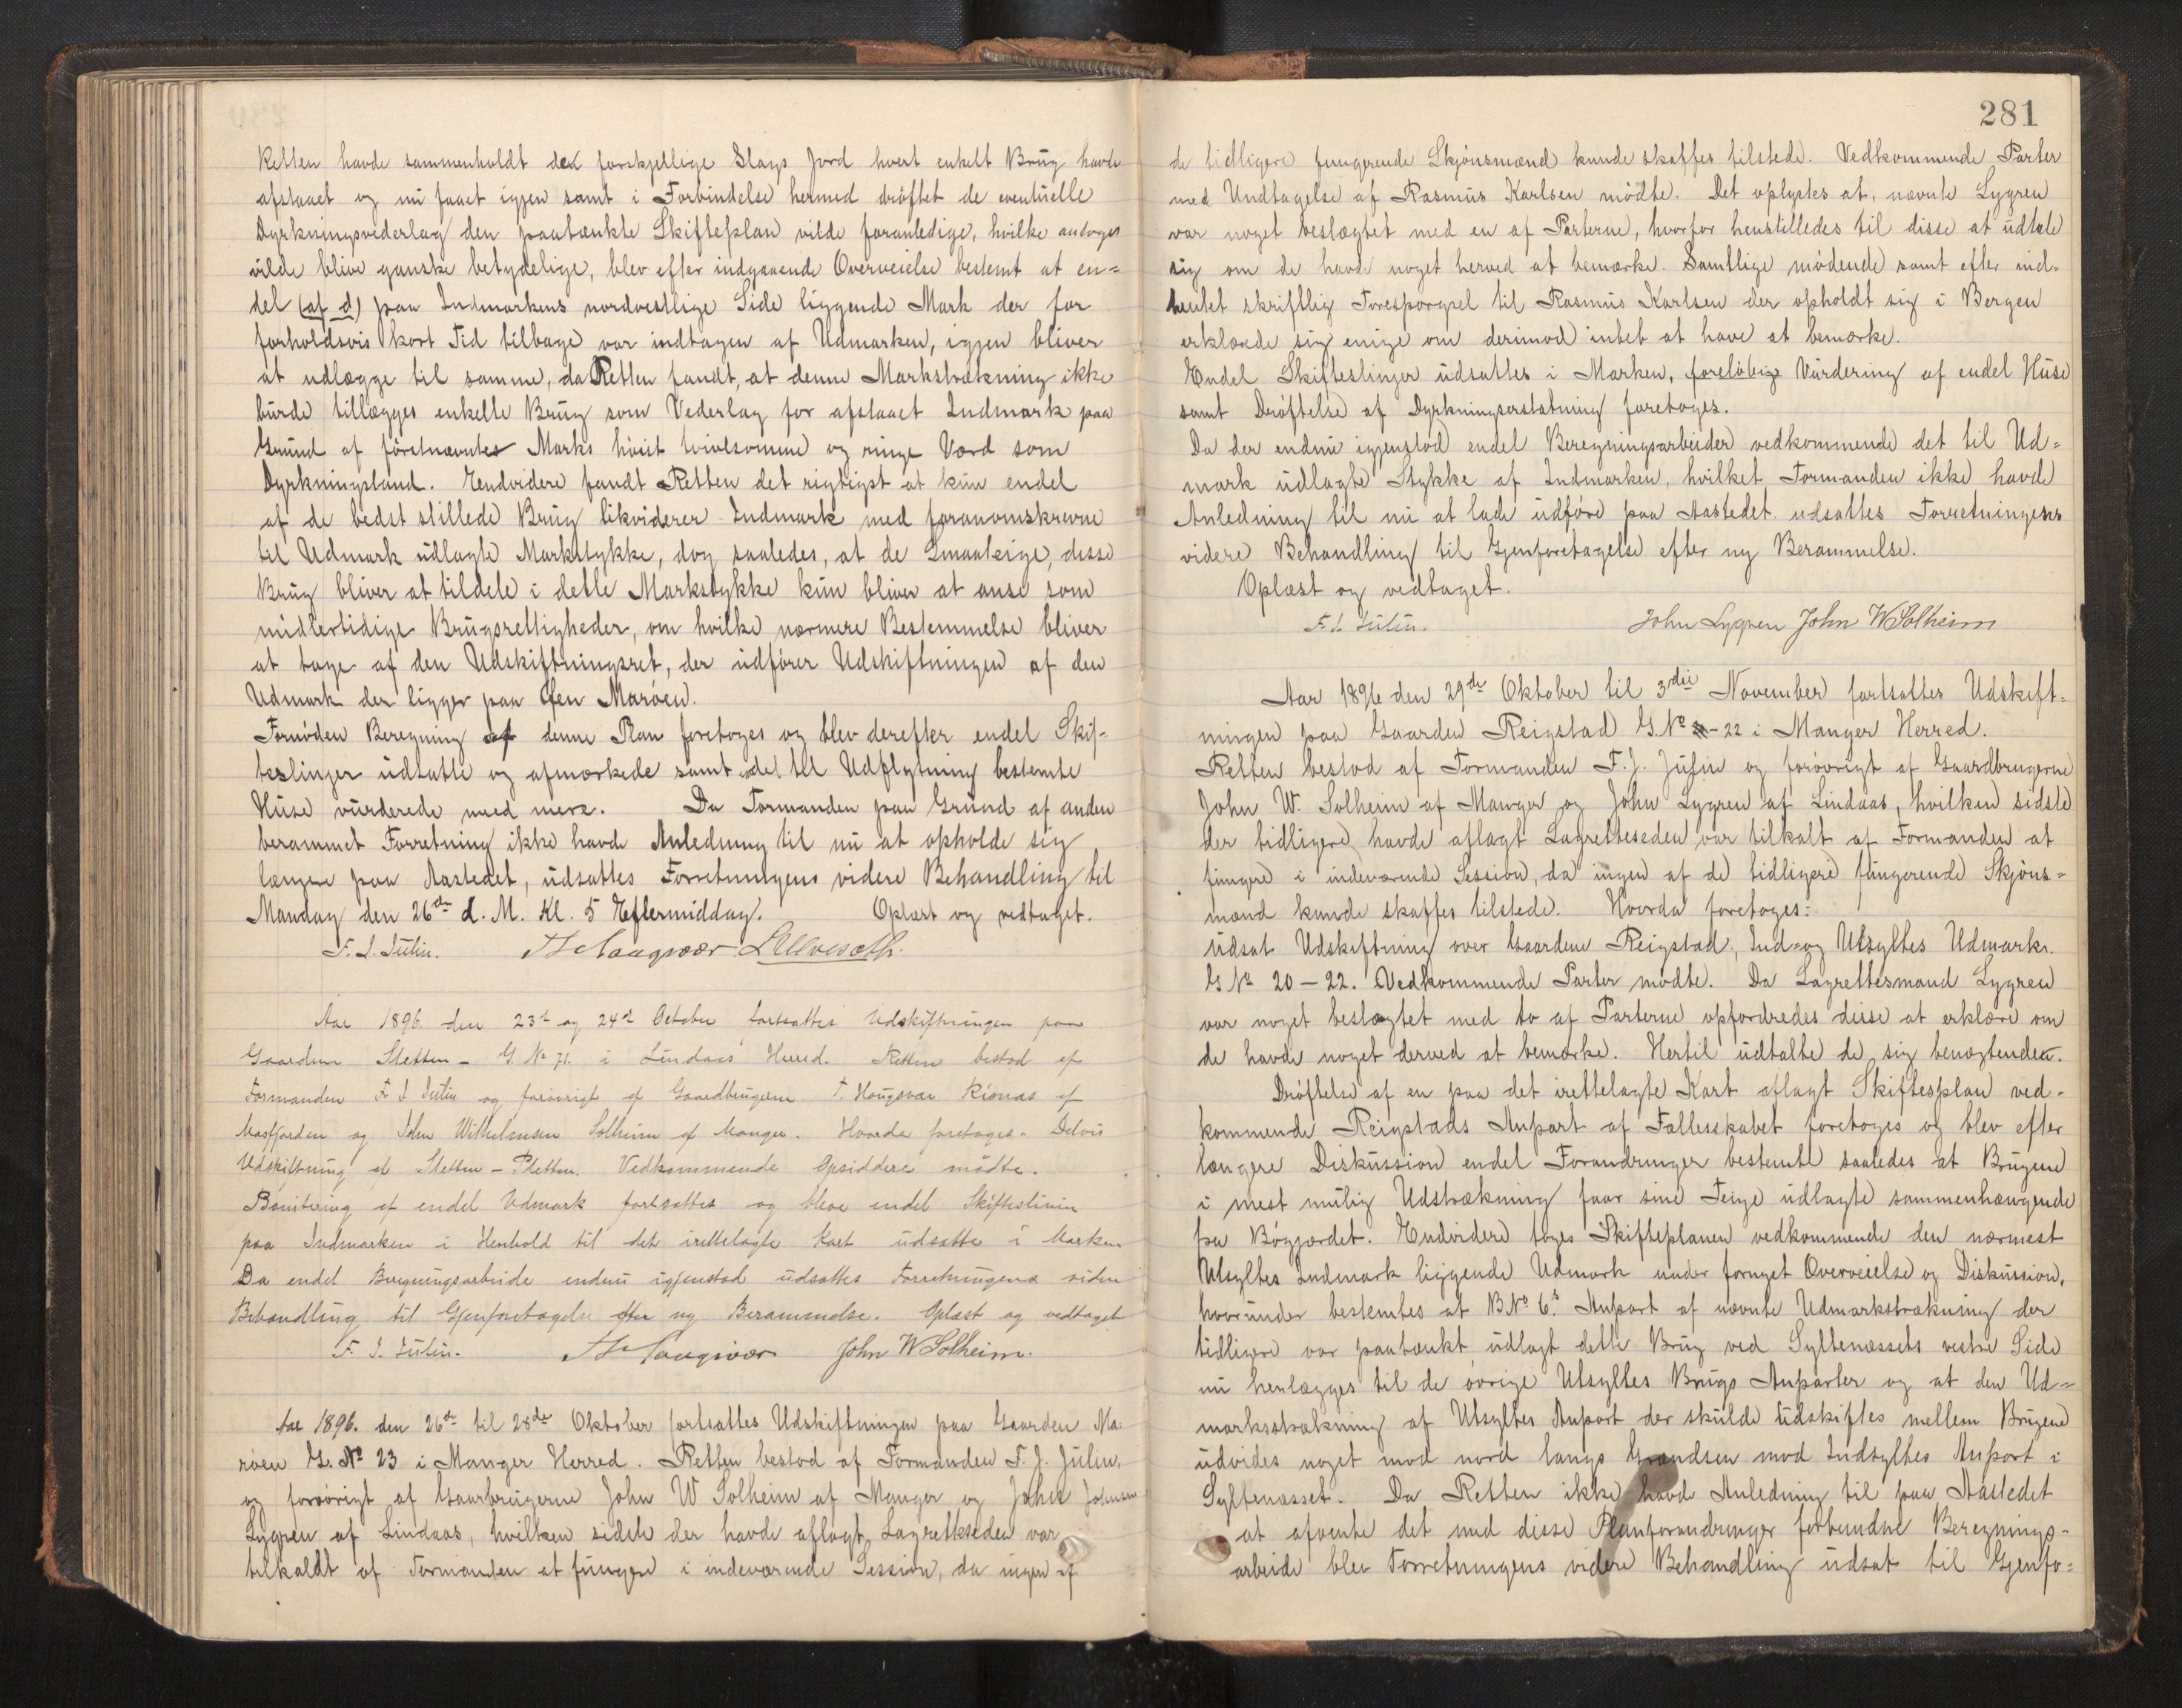 Retten havde sammenholdt det forskjellige Slags Jord hvert enkelt Brug havde
afstaaet og nu faaet igjen samt i Forbindelse hermed drøftet de eventuelle
Dyrkningsvederlag den paatænkte Skifteplan vilde foranledige, hvilke antoges
vilde blive ganske betydelige, blev efter indgaaende Overveielse bestemt at en=
del (af d) paa Indmarkens nordvestlige Side liggende Mark der for
forholdsvis kort Tid tilbage var indtagen af Udmarken, igjen bliver
at udlægge til samme, da Retten fandt, at denne Markstrækning ikke
burde tillægges enkelte Brug som Vederlag for afstaaet Indmark paa
Grund af førstnævntes Marks høist tvivlsomme og ringe Værd som
Dyrkningsland. Endvidere fandt Retten det rigtigst at kun endel
af de bedst stillede Brug likviderer Indmark med foranomskrevne
til Udmark udlagte Markstykke, dog saaledes, at de Smaateige, disse
Brug bliver at tildele i dette Markstykke kun bliver at anse som
midlertidige Brugsrettigheder, om hvilke nærmere Bestemmelse bliver
at tage af den Udskiftningsret, der udfører Udskiftningen af den
Udmark der ligger paa Øen Marøen.
Fornøden Beregning af denne Plan foretoges og blev derefter endel Skif-
teslinjer udsatte og afmærkede samt endel til Udflytning bestemte
Huse vurderede med mere. Da Formanden paa Grund af anden
berammet Forretning ikke havde Anledning til nu at opholde sig
længere paa Aastedet, udsattes Forretningens videre Behandling til
Mandag den 26de d. M. Kl. 5 Eftermiddag. Oplæst og vedtaget.
F. J. Julin.
Aar 1896 den 23de og 24de October fortsattes Udskiftningen paa
Gaarden Sletten - G. No 71. i Lindaas Herred. Retten bestod af
Formanden F J Julin og forøvrigt af Gaardbrugerne T. Haugsvær Risnæs af
Masfjorden og John Wilhelmsen Solheim af Manger. Hvorda foretoges. Delvis
Udskiftning af Sletten - Pletten. Vedkommende Opsiddere mødte.
Bonitering af endel Udmark fortsattes og bleve endel Skifteslinier
paa Indmarken i Henhold til det irettelagte Kart udsatte i Marken
Da endel Beregningsarbeide endnu igjenstod udsattes Forretningens videre
Behandling til Gjenforetagelse efter ny Berammelse. Oplæst og vedtaget
F. J. Julin. John W Solheim.
Aar 1896. den 26de til 28de Oktober fortsattes Udskiftningen paa Gaarden Ma-
røen G. No 23 i Manger Herred. Retten bestod af Formanden F. J. Julin,
og forøvrigt af Gaarbrugerne John W Solheim af Manger og John Johnsen
Lygren af Lindaas, hvilken sidste der havde aflagt Lagretteseden var
tilkaldt af Formanden at fungere i indeværende Session, da ingen af
281
de tidligere fungerende Skjønsmænd kunde skaffes tilstede. Vedkommende Parter
med Undtagelse af Rasmus Karlsen mødte. Det oplystes at, nævnte Lygren
var noget beslægtet med en af Parterne, hvorfor henstilledes til disse at udtale
sig om de havde noget herved at bemærke. Samtlige mødende samt efter ind-
hentet skriftlig Forespørgsel til Rasmus Karlsen der opholdt sig i Bergen
erklærede sig enige om derimod intet at have at bemærke.
Endel Skifteslinjer udsattes i Marken, foreløbig Vurdering af endel Huse
samt Drøftelse af Dyrkningserstatning foretoges.
Da der endnu igjenstod endel Beregningsarbeider vedkommende det til Ud=
mark udlagte Stykke af Indmarken, hvilket Formanden ikke havde
Anledning til nu at lade udføre paa Aastedet udsattes Forretningens
videre Behandling til Gjenforetagelse efter ny Berammelse.
Oplæst og vedtaget.
F. J. Julin. John Lygren John W Solheim
Aar 1896 den 29de Oktober til 3die November fortsattes Udskift-
ningen paa Gaarden Reigstad G. No - 22 i Manger Herred.
Retten bestod af Formanden F. J. Julin og forøvrigt af Gaardbrugerne
John W. Solheim af Manger og John Lygren af Lindaas, hvilken sidste
der tidligere havde aflagt Lagretteseden var tilkalt af Formanden at
fungere i indeværende Session, da ingen af de tidligere fungerende Skjøns=
mænd kunde skaffes tilstede. Hvorda foretoges:
udsat Udskiftning over Gaardene Reigstad, Ind- og Utsyltes Udmark.
G No 20 - 22. Vedkommende Parter mødte. Da Lagrettesmand Lygren
var noget beslægtet med to af Parterne opfordredes disse at erklære om
de havde noget derved at bemærke. Hertil udtalte de sig benægtende.
Drøftelse af en paa det irettelagte Kart aflagt Skiftesplan ved-
kommende Reigstads Anpart af Fællesskabet foretoges og blev efter
længere Diskussion endel Forandringer bestemte saaledes at Brugene
i mest mulig Udstrækning faar sine Teige udlagte sammenhængende
fra Bøgjærdet. Endvidere toges Skifteplanen vedkommende den nærmest
Utsyltes Indmark liggende Udmark under fornyet Overveielse og Diskussion,
hvorunder bestemtes at B No 6s Anpart af nævnte Udmarkstrækning der
tidligere var paatænkt udlagt dette Brug ved Syltenæssets vestre Side
nu henlægges til de øvrige Utsyltes Brugs Anparter og at den Ud-
marksstrækning af Utsyltes Anport der skulde Udskiftes mellem Brugene
udvides noget mod nord langs Grændsen mod Indsyltes Anport i
Syltenæsset. Da Retten ikke havde Anledning til paa Aastedet
at afvente det med disse Planforandringer forbundne Beregnings-
arbeide blev Forretningens videre Behandling udsat til Gjenfo=